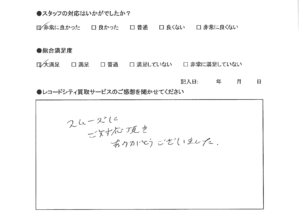 ●スタッフの対応はいかがでしたか？
□非常に良かった □良かった □普通 □良くない □非常に良くない
●総合満足度
□大満足 □満足 □普通 □満足していない □非常に満足していない
記入日： 年 月 日
●レコードシティ買取サービスのご感想を聞かせてください
スムーズに
ご対応頂き
ありがとうございました。